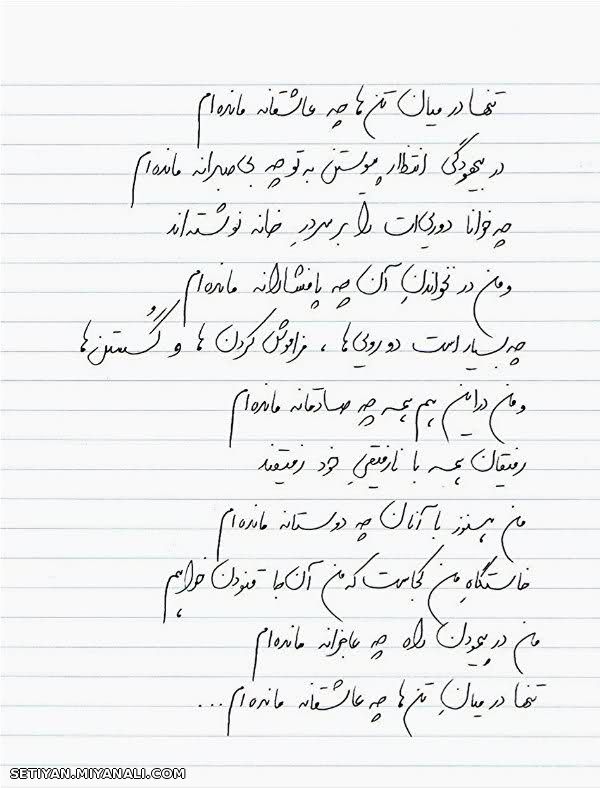 تنها در میان تن‌ها چه عاشقانه مانده‌ام
در بیهودگی انتظار پیوستن به تو چه بی‌صبرانه مانده‌ام
چه خوانا دوری‌ات را بر سردر خانه نوشته‌اند
و من در نخواندنِ آن چه پافشارانه مانده‌ام
چه بسیار است دورویی‌ها ، فراموش کردن ها و گُسستن‌ها
و من در این همهمه چه صادقانه مانده‌ام
رفیقان همه با نارفیقیِ خود رفیقند
من هنوز با آنان چه دوستانه مانده‌ام
خاستگاهِ من کجاست که من آن‌جا غنودن خواهم
من در پیمودن راه چه عاجزانه مانده‌ام
تنها در میانِ تن‌ها چه عاشقانه مانده‌ام ...
SETIYAN.MIYANALI.COM